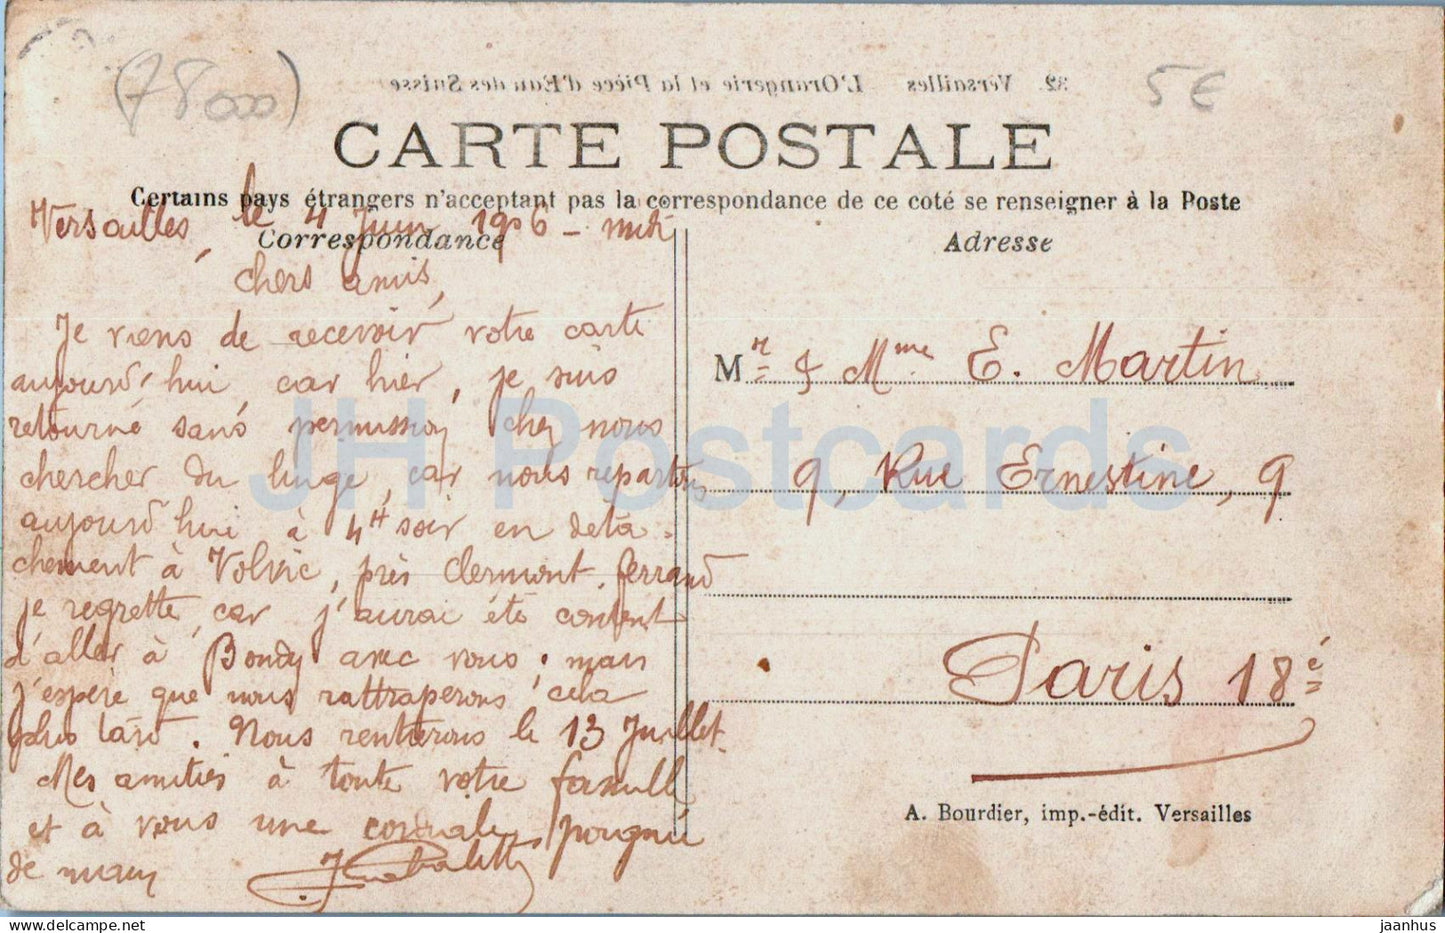 (78000)
32. Versailles - L'Orangerie et la Pièce d'Eau des Suisse
5€
CARTE POSTALE
Certains pays étrangers n'acceptant pas la correspondance de ce coté se renseigner à la Poste
Versailles, le 4 Juin 1906 - midi
Correspondance
Adresse
chers amis,
Je viens de recevoir votre carte
aujourd'hui, car hier, je suis
retourné sans permission chez nous
chercher du linge, car nous repartons
aujourd'hui à 4H soir en déta-
chement à Volvic, près Clermont-ferrand
je regrette, car j'aurai été content
d'aller à Bondy avec vous; mais
j'espère que nous rattraperons cela
plus tard. Nous rentrerons le 13 Juillet.
Mes amitiés à toute votre famille
et à vous une cordiale poignée
de main
Mr & Mme E. Martin
9, Rue Ernestine, 9
Paris 18è
A. Bourdier, imp.-édit. Versailles
JH Postcards
delcampe.net
jaanhus